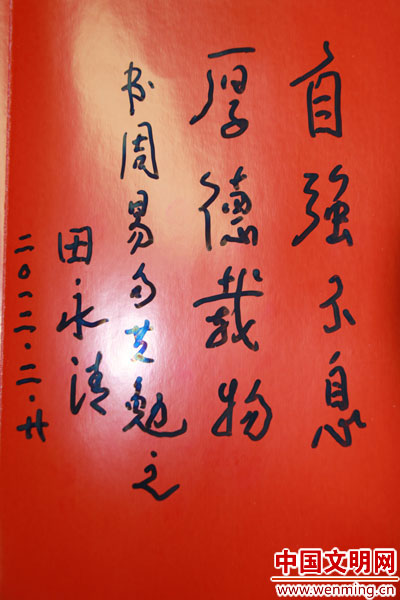 自強不息
厚德载物
书周易句共勉之
田永清
二〇一二·二·廿
中国文明网
www.wenming.cn